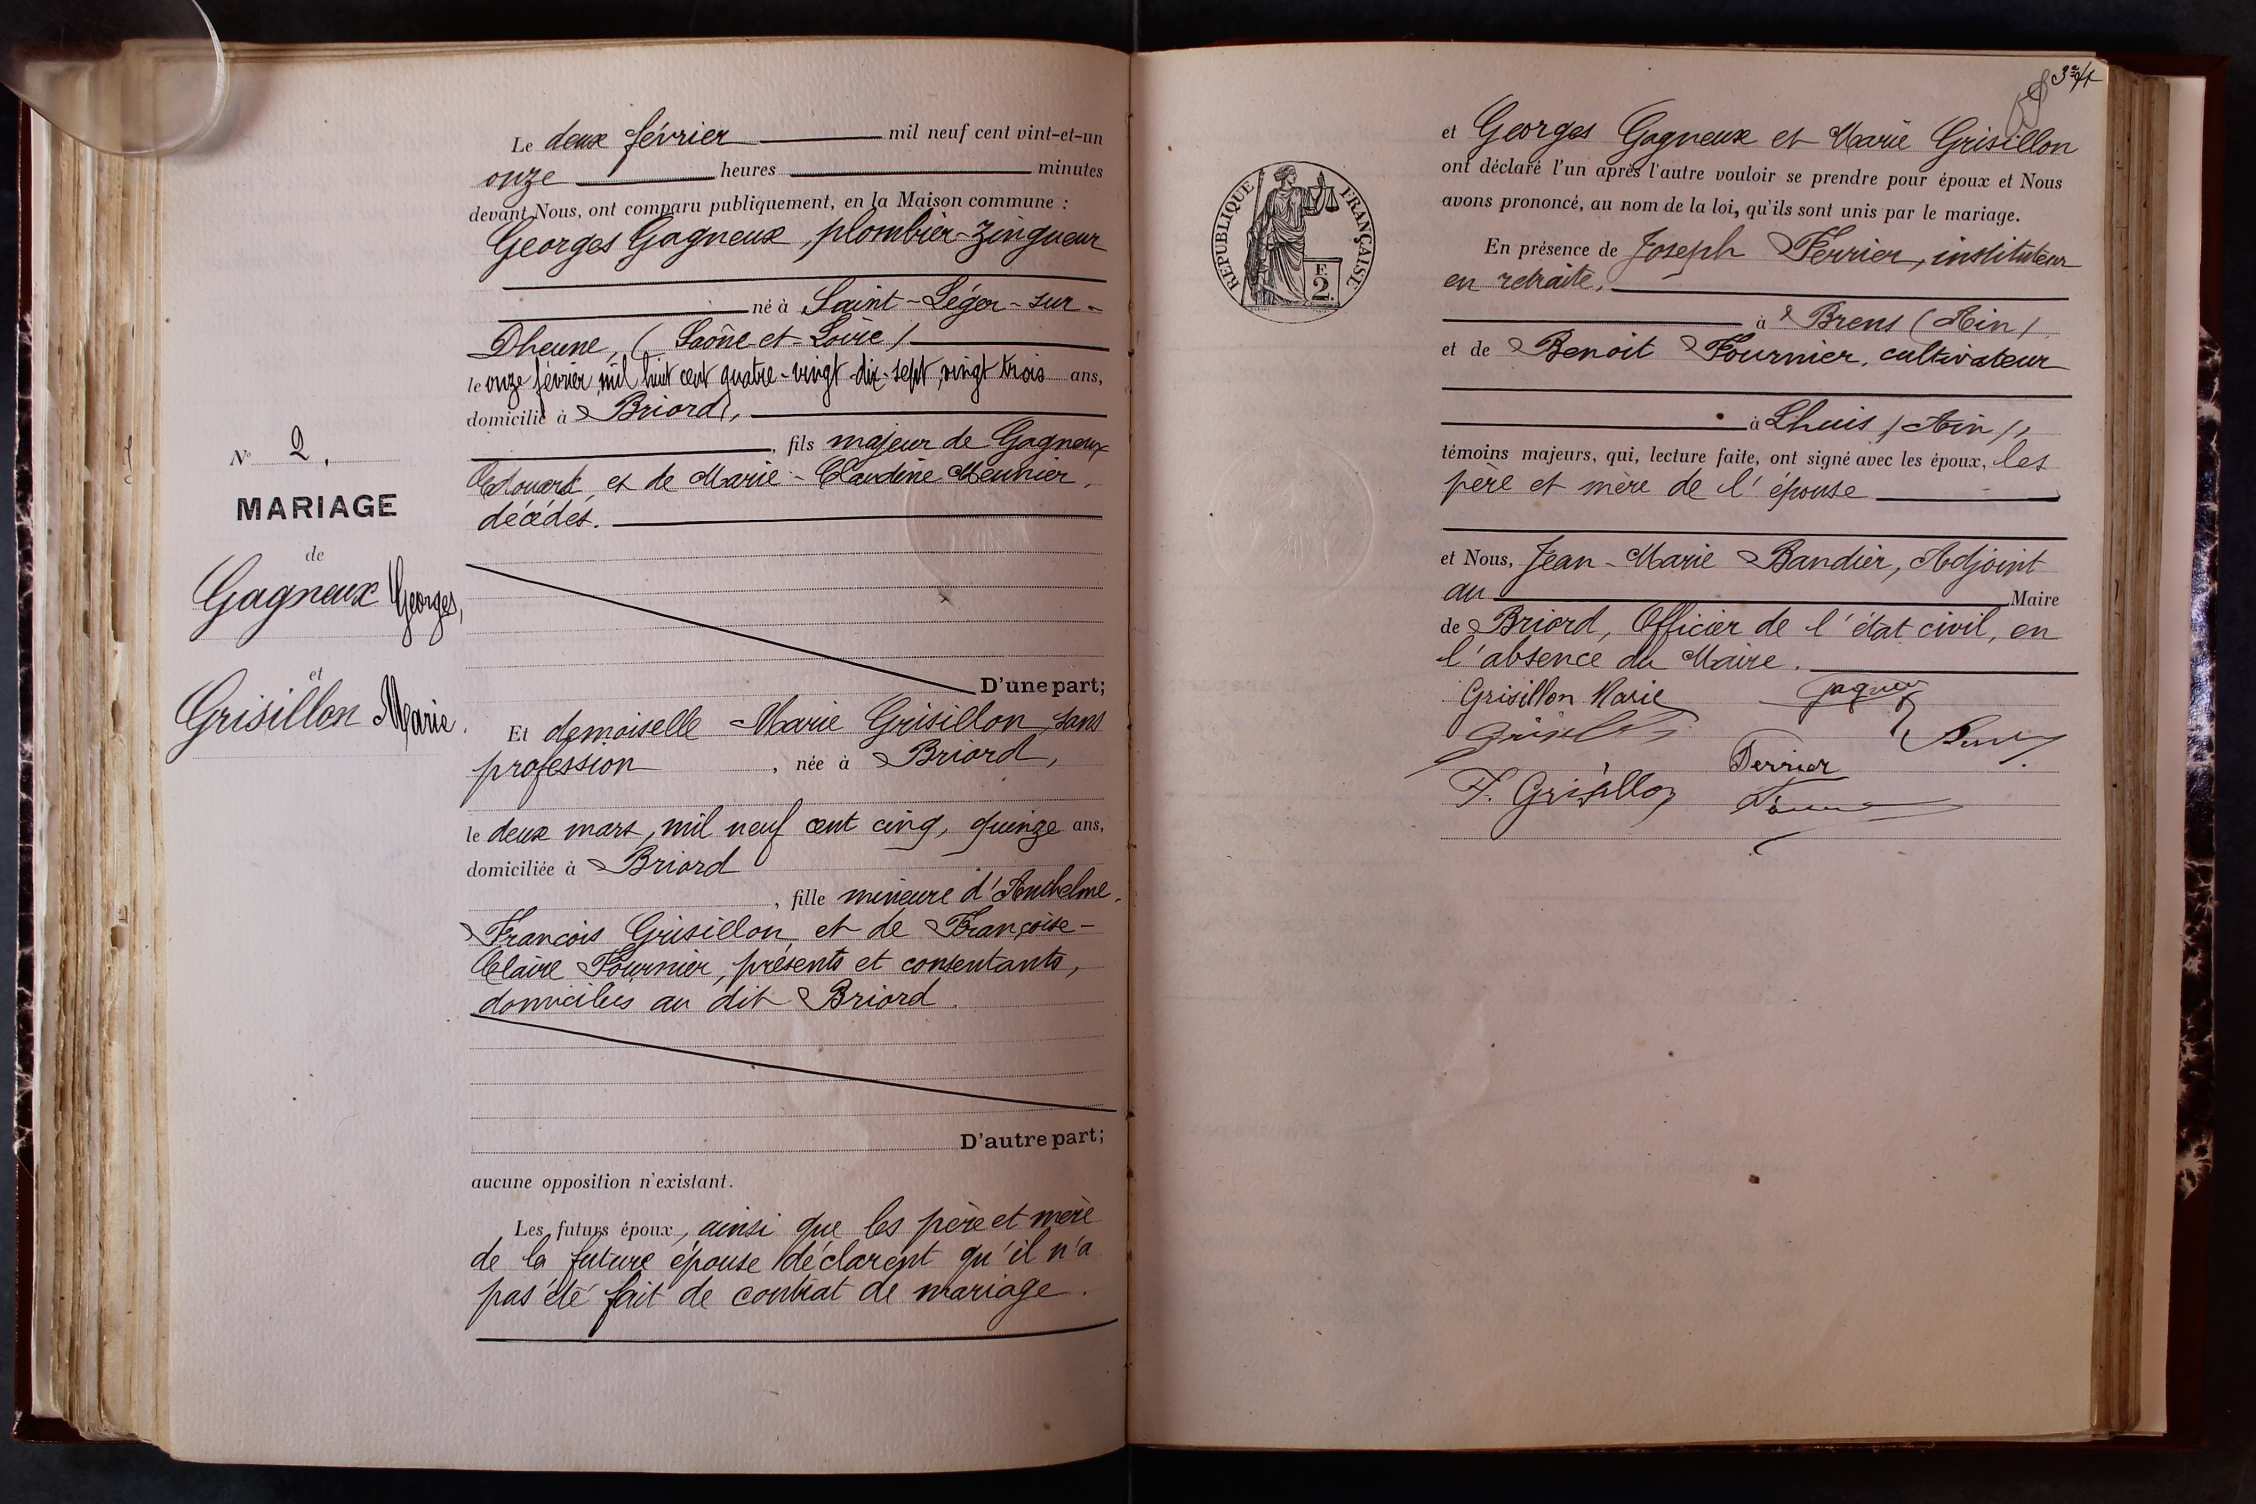 Le deux février mil neuf cent vint-et-un
onze heures minutes
devant Nous, ont comparu publiquement, en la Maison commune :
Georges Gagneux, plombier-Zingueur
né à Saint-Léger-sur-
Dheune, (Saône-et-Loire)
le onze février, mil huit cent quatre-vingt-dix-sept, vingt trois ans,
domicilié à Briord,
, fils majeur de Gagneux
Edouard, et de Marie-Claudine Meunier,
décédés.
D'une part;
N° 2.
MARIAGE
de
Gagneux Georges,
et
Grisillon Marie.
Et demoiselle Marie Grisillon, sans
profession , née à Briord,
le deux mars, mil neuf cent cinq, quinze ans,
domiciliée à Briord
, fille mineure d'Anthelme-
François Grisillon, et de Françoise-
Claire Fournier, présents et consentants,
domiciliés au dit Briord.
D'autre part;
aucune opposition n'existant.
Les futurs époux, ainsi que les père et mère
de la future épouse déclarent qu'il n'a
pas été fait de contrat de mariage.
3
RÉPUBLIQUE FRANÇAISE
F.
2
et Georges Gagneux et Marie Grisillon
ont déclaré l'un après l'autre vouloir se prendre pour époux et Nous
avons prononcé, au nom de la loi, qu'ils sont unis par le mariage.
En présence de Joseph Ferrier, instituteur
en retraite,
à Brens (Ain)
et de Benoit Fournier, cultivateur
à Lhuis (Ain),
témoins majeurs, qui, lecture faite, ont signé avec les époux, les
père et mère de l'épouse
et Nous, Jean-Marie Bandier, Adjoint
au Maire
de Briord, Officier de l'état civil, en
l'absence du Maire.
Grisillon Marie Gagneux
Ferrier
F. Grisillon